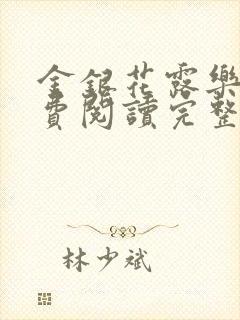 金銀花露樂
費閱讀完整
林少斌